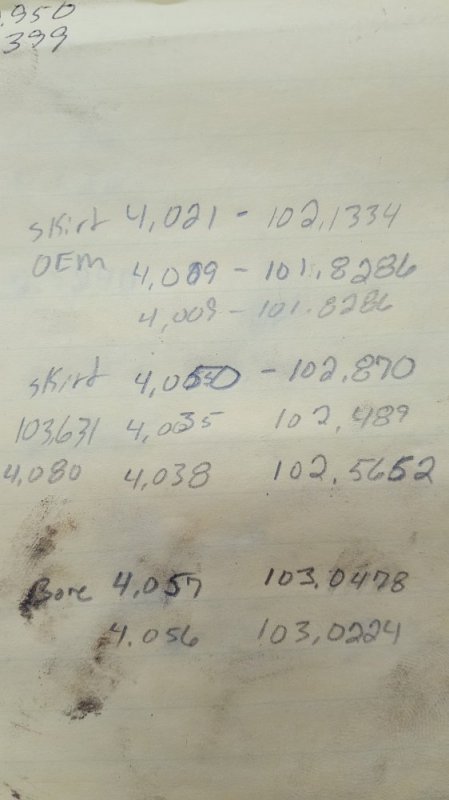 .950
399
skirt 4,021 - 102,1334
OEM 4,009 - 101.8286
4,009 - 101.8286
skirt 4,050 - 102,870
103,631 4,035 102,489
4,080 4,038 102.5652
Bore 4.057 103.0478
4.056 103,0224